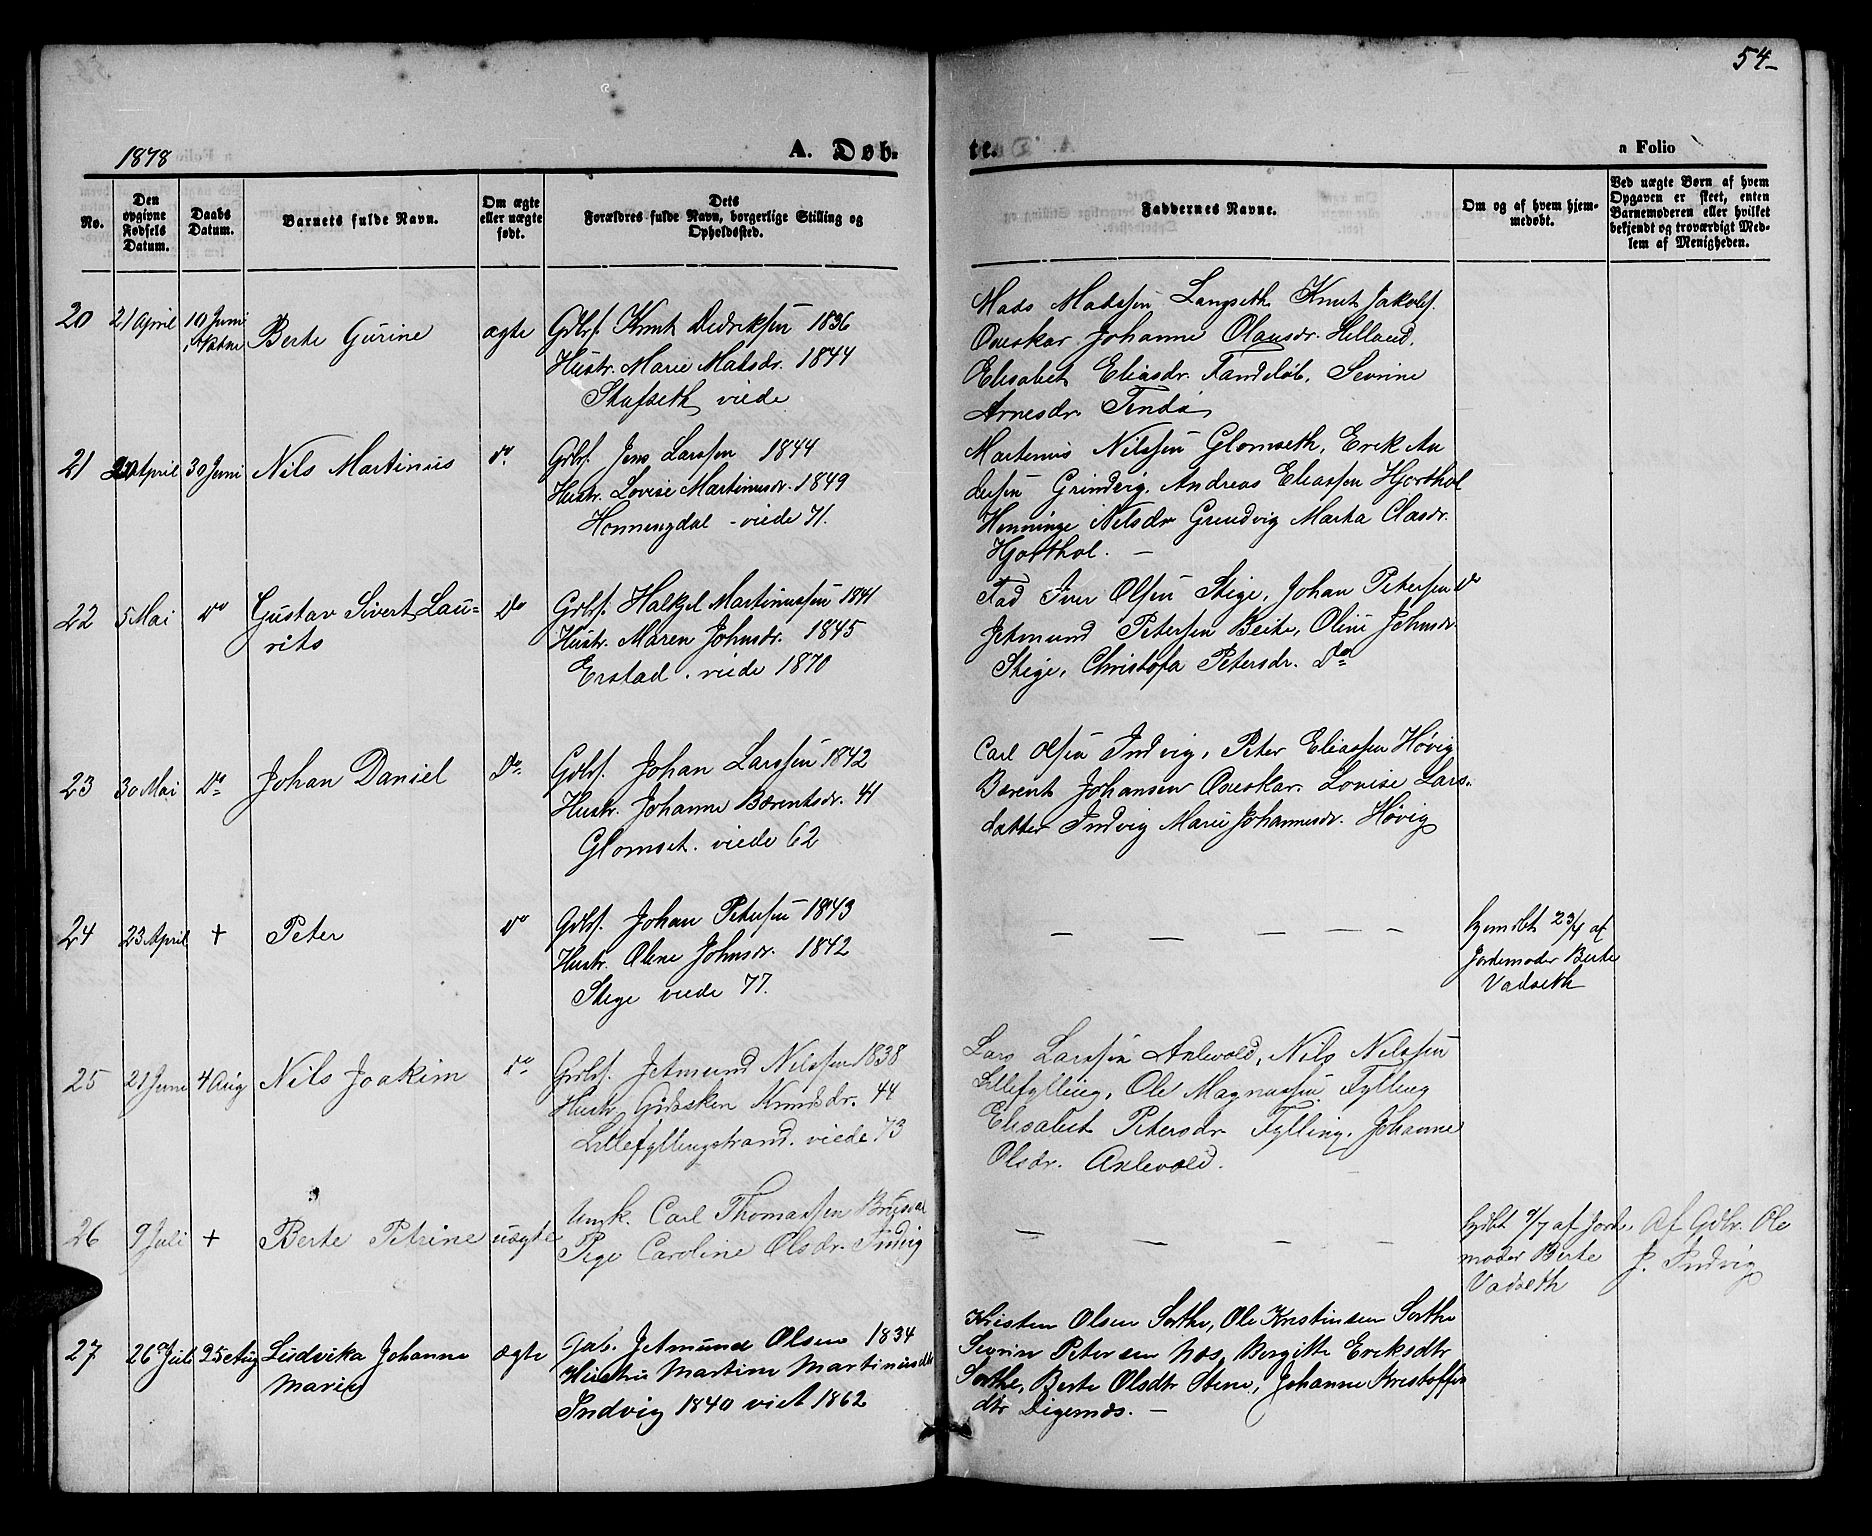 54-
1878
A. Døb-
te.
a Folio
No.
Den opgivne Fødsels Datum.
Daabs Datum.
Barnets fulde Navn.
Om ægte eller uægte født.
Dets Forældres fulde Navn, borgerlige Stilling og Opholdssted.
Faddernes Navne.
Om og af hvem hjemmedøbt.
Ved uægte Børn af hvem Opgaven er skeet, enten Barnemoderen eller hvilket bekjendt og troværdigt Medlem af Menigheden.
20 21 April 10 Juni Berte Gurine ægte
Gdbs. Knut Didriksen 1836
Hustr. Marie Matsdr. 1844
Stafseth viede
Mads Madssen Langseth Knut Jakobs.
Oueskar Johanne Olausdr. Hilland,
Elisabet Eliasdr. Fandeløb, Sevrine
Arnesdr.
21 April 30 Juni Nils Martinus do.
Gdbs. Jens Larssen 1844
Hustr. Lovise Martinusdr. 1849
Honningdal - viede 71.
Martinus Nilssen Glomseth, Erik An
dersen Grindvig. Andreas Eliassen Hjorthol
Henninge Nilsdr Grindvig Marta Clasdr.
Hjorthol. —
22 5 Mai do Gustav Sivert Lau=
rits
Do
Gdbs. Halkjel Martinussen 1841
Hustr. Maren Johnsdr. 1845
Erstad . viede 1870
Fad Iver Olsen Stige, Johan Petersen do
Jetmund Petersen Beite, Oline Johnsdr
Stige, Christofa Petersdr. Do
23 30 Mai Do Johan Daniel Do.
Gdbs. Johan Larssen 1842
Hustr. Johanne Bærentsdr. 41
Glomset . viede 62
Carl Olsen Indvig, Peter Eliassen Høvig
Bærent Johansen Oueskar. Lovise Lars-
datter Indvig Marie Johannesdr. Høvig
24 23 April + Peter do
Gdbs. Johan Petersen 1843
Hustr. Oline Johnsdr. 1842
Stige viede 77.
— — — — —
hjemdbt 23/4 af
Jordemoder Berte
Vadseth
25 21 Juni 4 Aug Nils Joakim do
Gdbs. Jetmund Nilssen 1838
Hustr. Gidsken Knudsdr. 44
Lillefyllingstrand. viede 73
Lars Larssen Axlevold, Nils Nilssen
Lillefylling, Ole Magnussen Fylling
Elisabet Petersdr Fylling, Johanne
Olsdr. Axlevold.
26 9 Juli + Berte Petrine uægte
Ungk. Carl Thomassen
Pige Caroline Olsdr. Indvig
— — — —
hjdbt 9/7 af Jorde
moder Berte
Vadseth
Af Gdbr. Ole
J. Indvig
27 26 Juli 25 Aug Ludvika Johanna
Marie
ægte
Gab. Jetmund Olsen 1834
Hustru Martine Martinusdtr
Indvig 1840 viet 1862
Kristen Olsen Sorthe, Ole Kristinsen Sorthe
Sevrin Petersen Næs, Borgitte Eriksdtr
Sorthe, Berte Olsdtr Stene, Johanne Kristoffers
dtr Digernæs. —